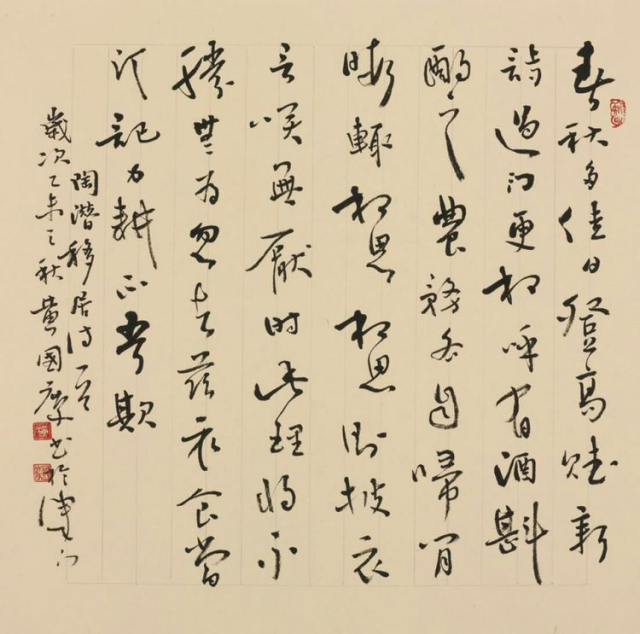 春秋多佳日登高賦新
詩過门更相呼有酒斟
酌之農務各自歸閒
暇輒相思相思則披衣
言咲無厭時此理將不
勝無为忽去茲衣食當
須記力耕不吾欺
陶潛移居诗一首
歲次乙未之秋黄國书於